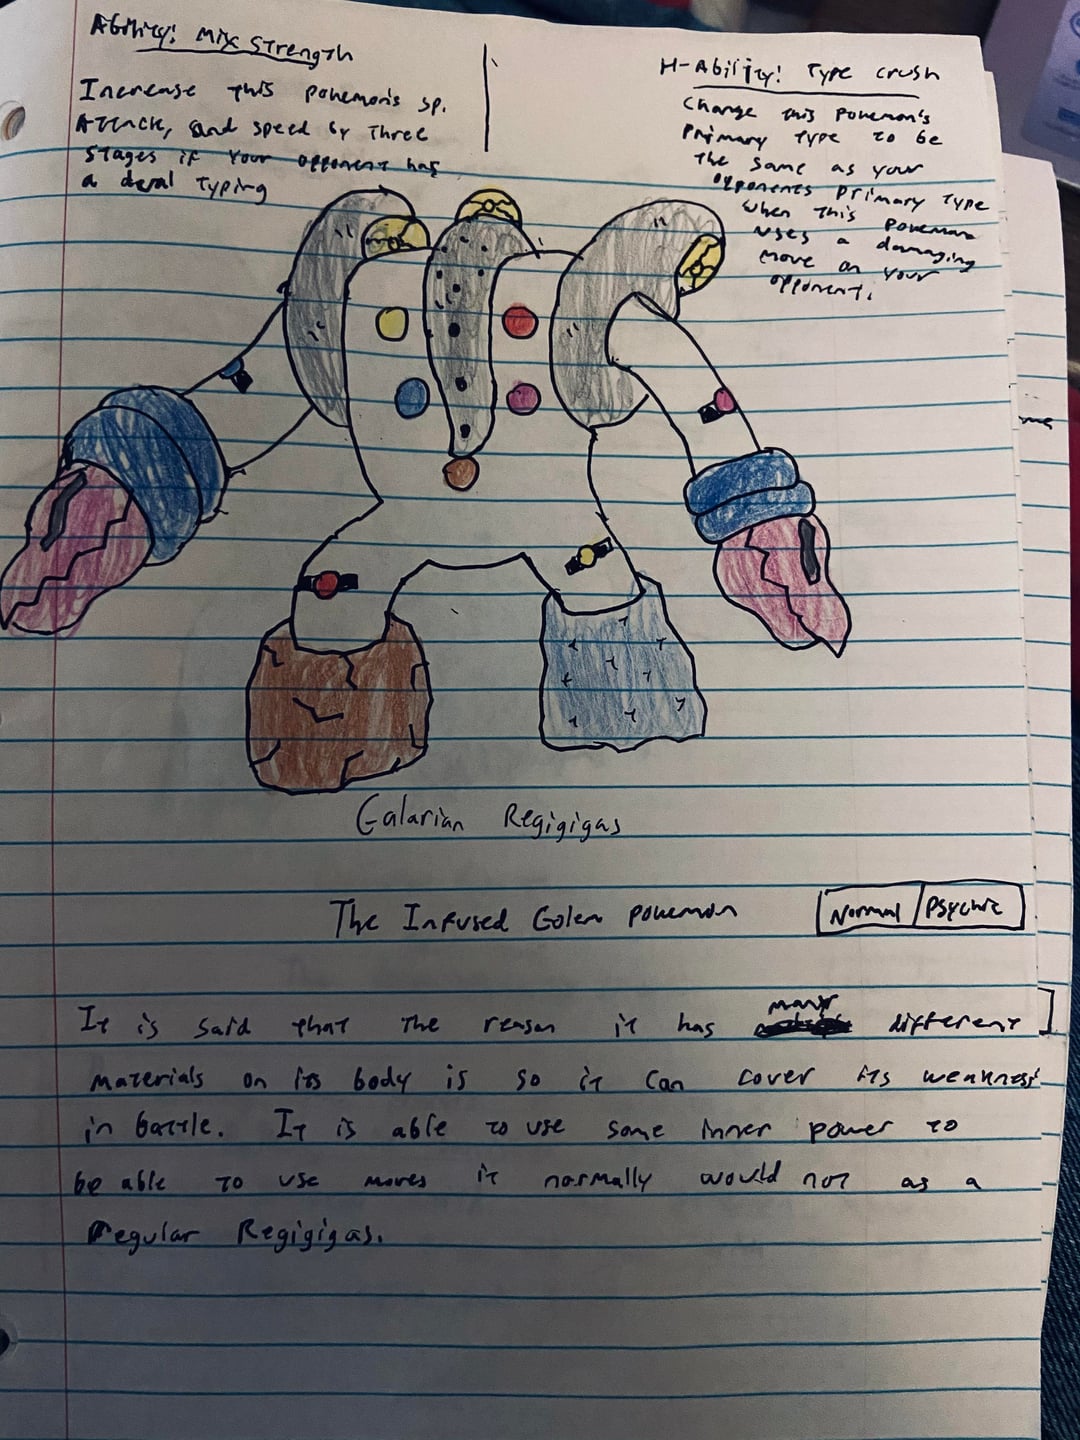 Ability: Mix Strength
Increase this pokemon's sp.
Attack, and speed by three
stages if your opponent has
a deual typing
H-Ability: Type crush
Change this pokemon's
primary type to be
the same as your
opponents primary type
when this pokemon
uses a damaging
move on your
opponent.
Galarian Regigigas
The Infused Golem pokemon
Normal Psychic
It is said that the reason it has many different
materials on its body is so it can cover its weakness
in battle. It is able to use some inner power to
be able to use moves it normally would not as a
regular Regigigas.